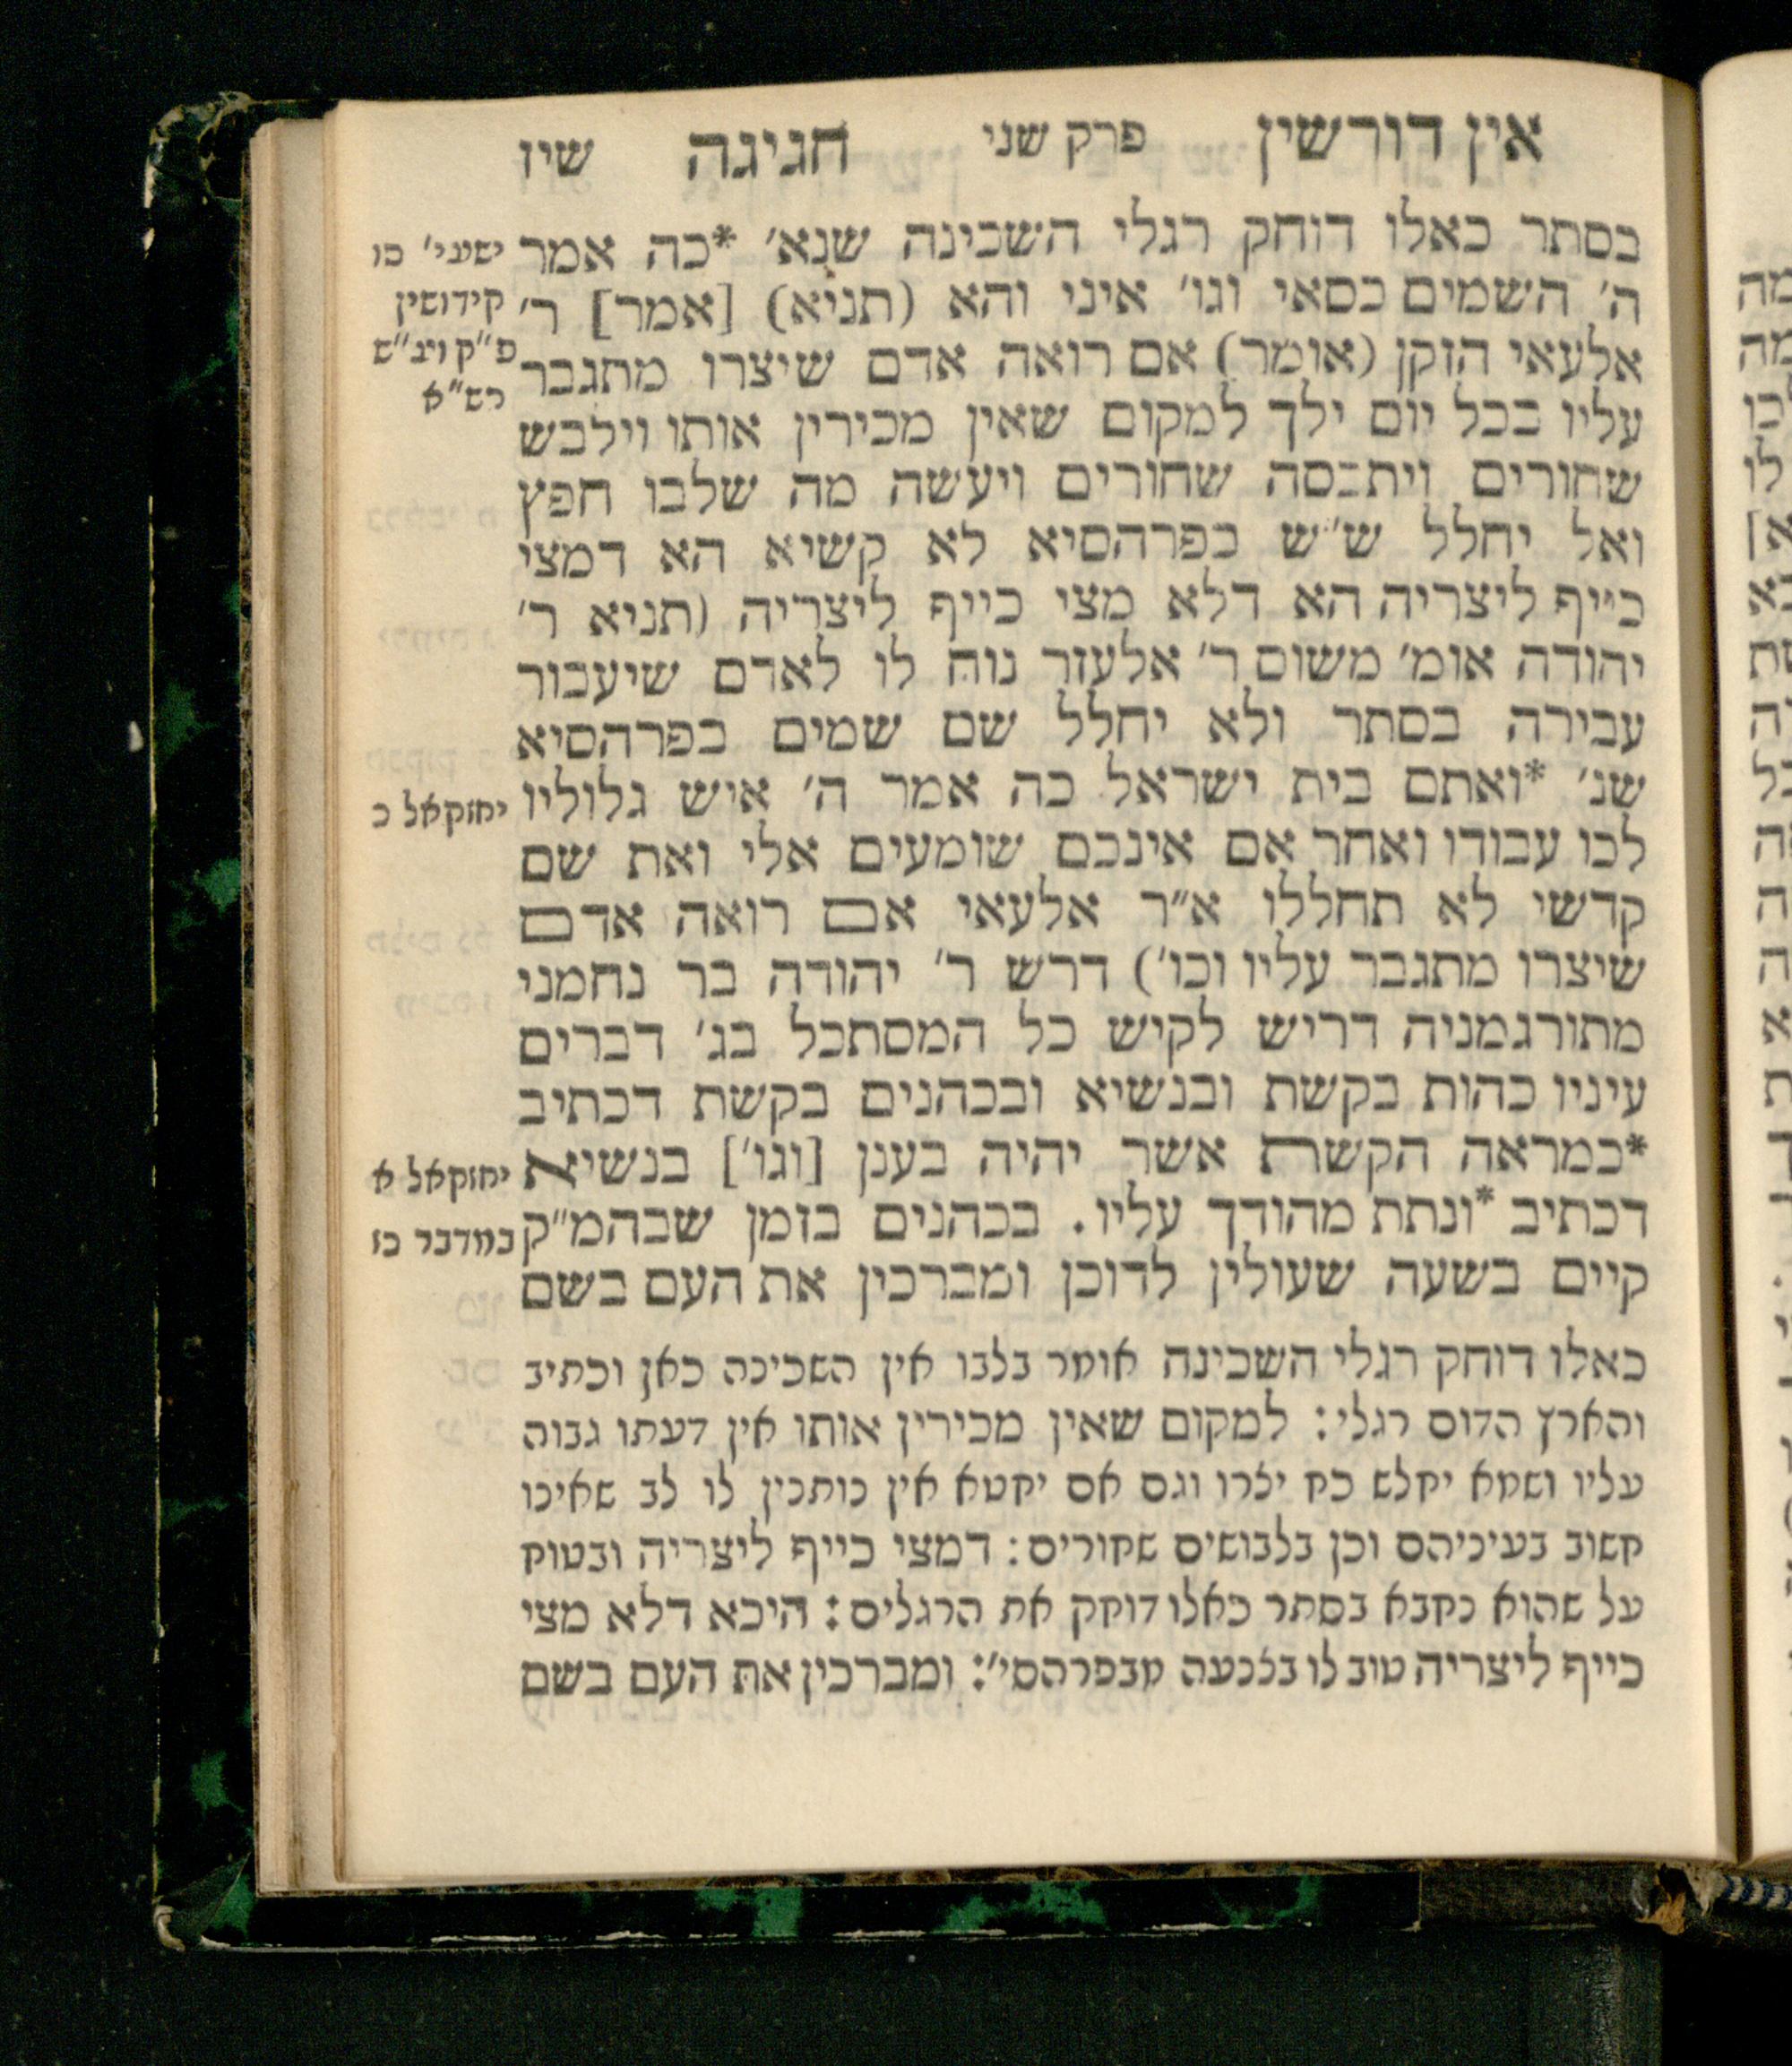 אין דורשין פרק שני חגיגה שיז
בסתר כאלו דוחק רגלי השכינה שנא׳ *כה אמר
ישעי׳ סו
ה׳ השמים כסאי וגו׳ איני והא (תניא) [אמר] ר׳
קידושין
אלעאי הזקן (אומר) אם רואה אדם שיצרו מתגבר
רש״א
עליו בכל יום ילך למקום שאין מכירין אותו וילבש
שחורים ויתכסה שחורים ויעשה מה שלבו חפץ
ואל יחלל ש״ש בפרהסיא לא קשיא הא דמצי
כייף ליצריה הא דלא מצי כייף ליצריה (תניא ר׳
יהודה אומ׳ משום ר׳ אלעזר נוח לו לאדם שיעבור
עבירה בסתר ולא יחלל שם שמים בפרהסיא
שנ׳ *ואתם בית ישראל כה אמר ה׳ איש גלוליו
יחזקאל כ
לכו עבודו ואחר אם אינכם שומעים אלי ואת שם
קדשי לא תחללו א״ר אלעאי אם רואה אדם
שיצרו מתגבר עליו וכו׳) דרש ר׳ יהודה בר נחמני
מתורגמניה דריש לקיש כל המסתכל בג׳ דברים
עיניו כהות בקשת ובנשיא ובכהנים בקשת דכתיב
*כמראה הקשת אשר יהיה בענן [וגו׳] בנשיא
יחזקאל א
דכתיב *ונתת מהודך עליו. בכהנים בזמן שבהמ״ק
במדבר כז
קיים בשעה שעולין לדוכן ומברכין את העם בשם
כאלו דוחק רגלי השכינה אומר בלבו אין השכינה כאן וכתיב
והארץ הדום רגלי: למקום שאין מכירין אותו אין דעתו גבוה
עליו ושמא יחלש כח יצרו וגם אם יחטא אין נותנין לו לב שאינו
חשוב בעיניהם וכן בלבושים שחורים: דמצי כייף ליצריה ובטוח
על שהוא נחבא בסתר כאלו דוחק את הרגלים: היכא דלא מצי
כייף ליצריה טוב לו בצנעה מבפרהסי׳: ומברכין את העם בשם